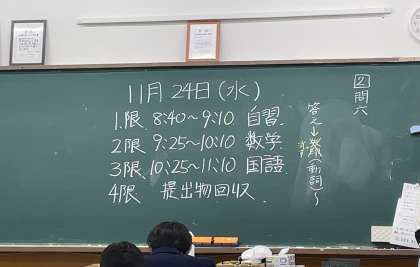 11月24日(水)
1.限 8:40~9:10 自習.
2限 9:25~10:10 数学
3限 10:25~11:10 国語.
4限 提出物回収.
2問六
答え↓ (動詞)~